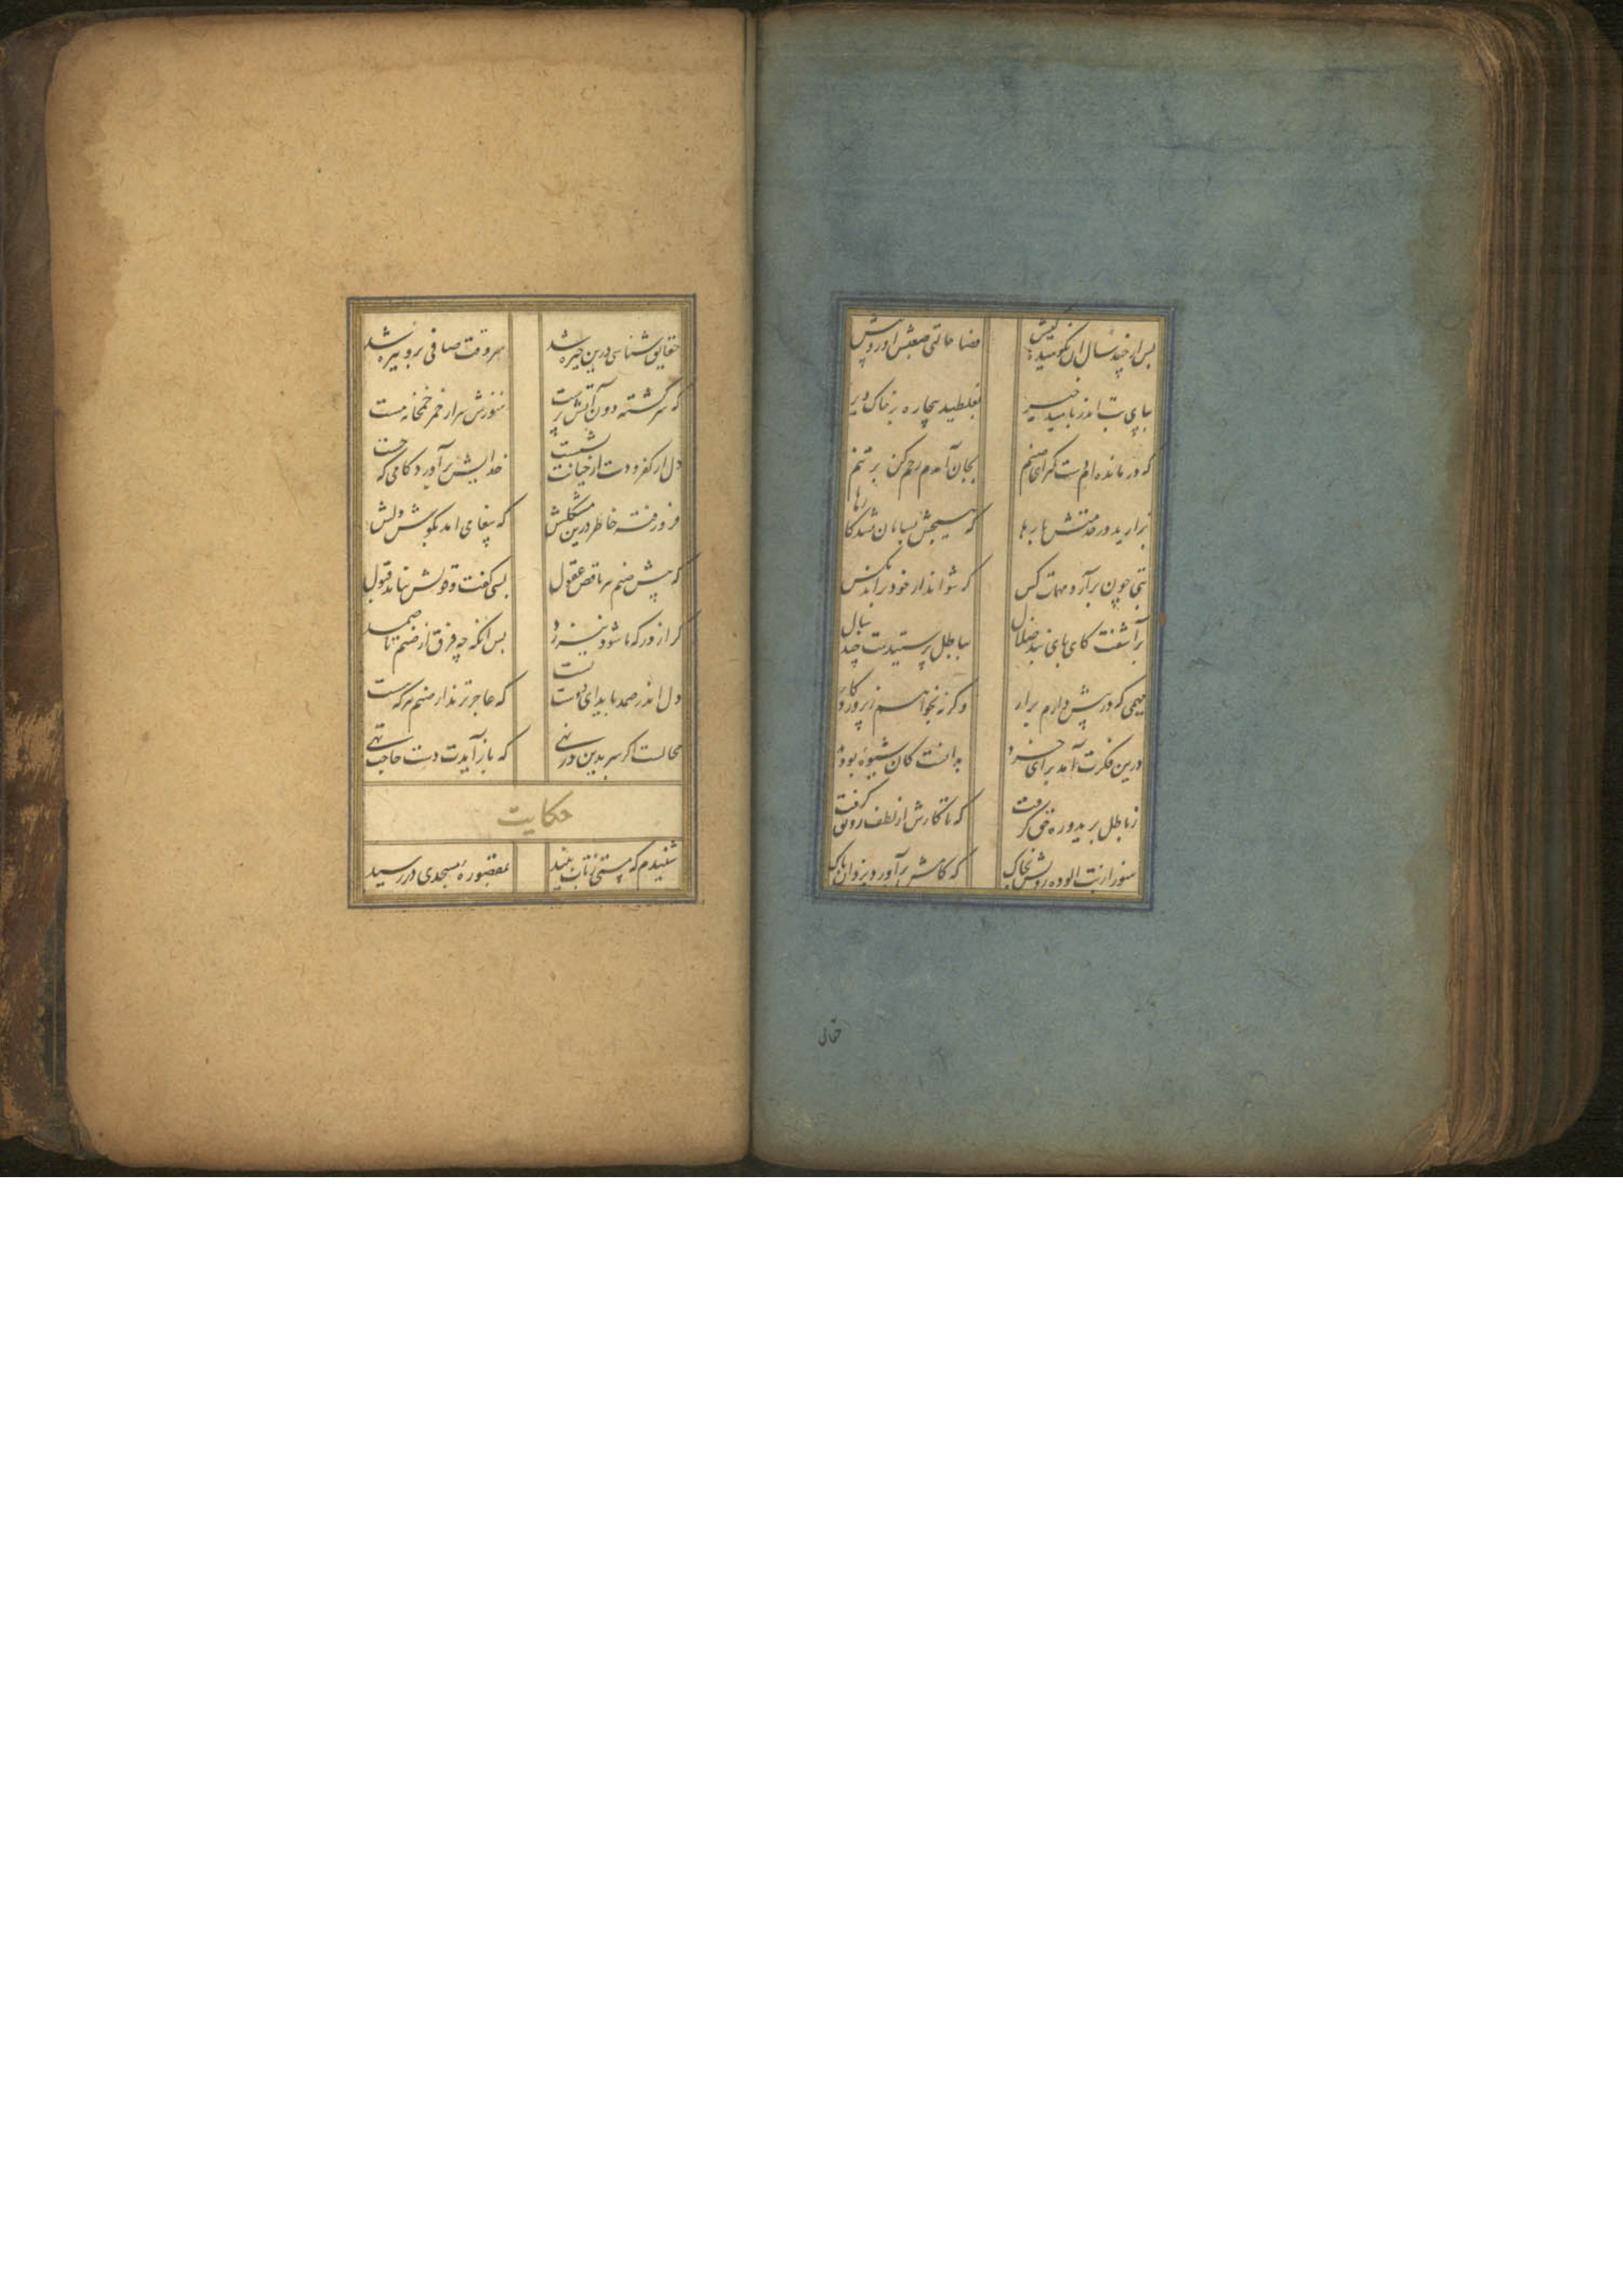 پس از چند سال آن نکوهیده کیش قضا حالتی صعبش آورد پیش
بپای بت اندر بامید خیر بغلطید بیچاره بر خاک دیر
که درمانده ام دست گیر ای صنم بجان آمدم رحم کن بر تنم
بزارید در خدمتش بارها که هیچش بسامان نشد کارها
بتی چون برآرد مهمات کس که نتواند از خود براند مگس
برآشفت کای پای بند ضلال بباطل پرستیدمت چند سال
مهمی که در پیش دارم برار وگرنه بخواهم ز پروردگار
درین فکرت آمد برای خرد بدانست کان شیوه بود
ز باطل برید و ره حق گرفت که تا کارش از لطف رونق گرفت
هنوز از بت آلوده رویش بخاک که کامش برآورد یزدان پاک
حقایق
حقایق شناسی درین خیره شد سر وقت صافی برو تیره شد
که سرگشته دون آتش پرست هنوزش سر از خمر خمخانه مست
دل از کفر و دست از خیانت نشست خدایش برآورد کامی که جست
فرو رفته خاطر درین مشکلش که پیغامی آمد بگوش دلش
که پیش صنم پیر ناقص عقول بسی گفت و قولش نیامد قبول
گر از درگه ما شود نیز رد پس آنگه چه فرق از صنم تا صمد
دل اندر صمد باید ای دوست بست که عاجزترند از صنم هر که هست
محالست اگر سر بدین در نهی که باز آیدت دست حاجت تهی
حکایت
شنیدم که مستی ز تاب نبید بمقصوره مسجدی در رسید